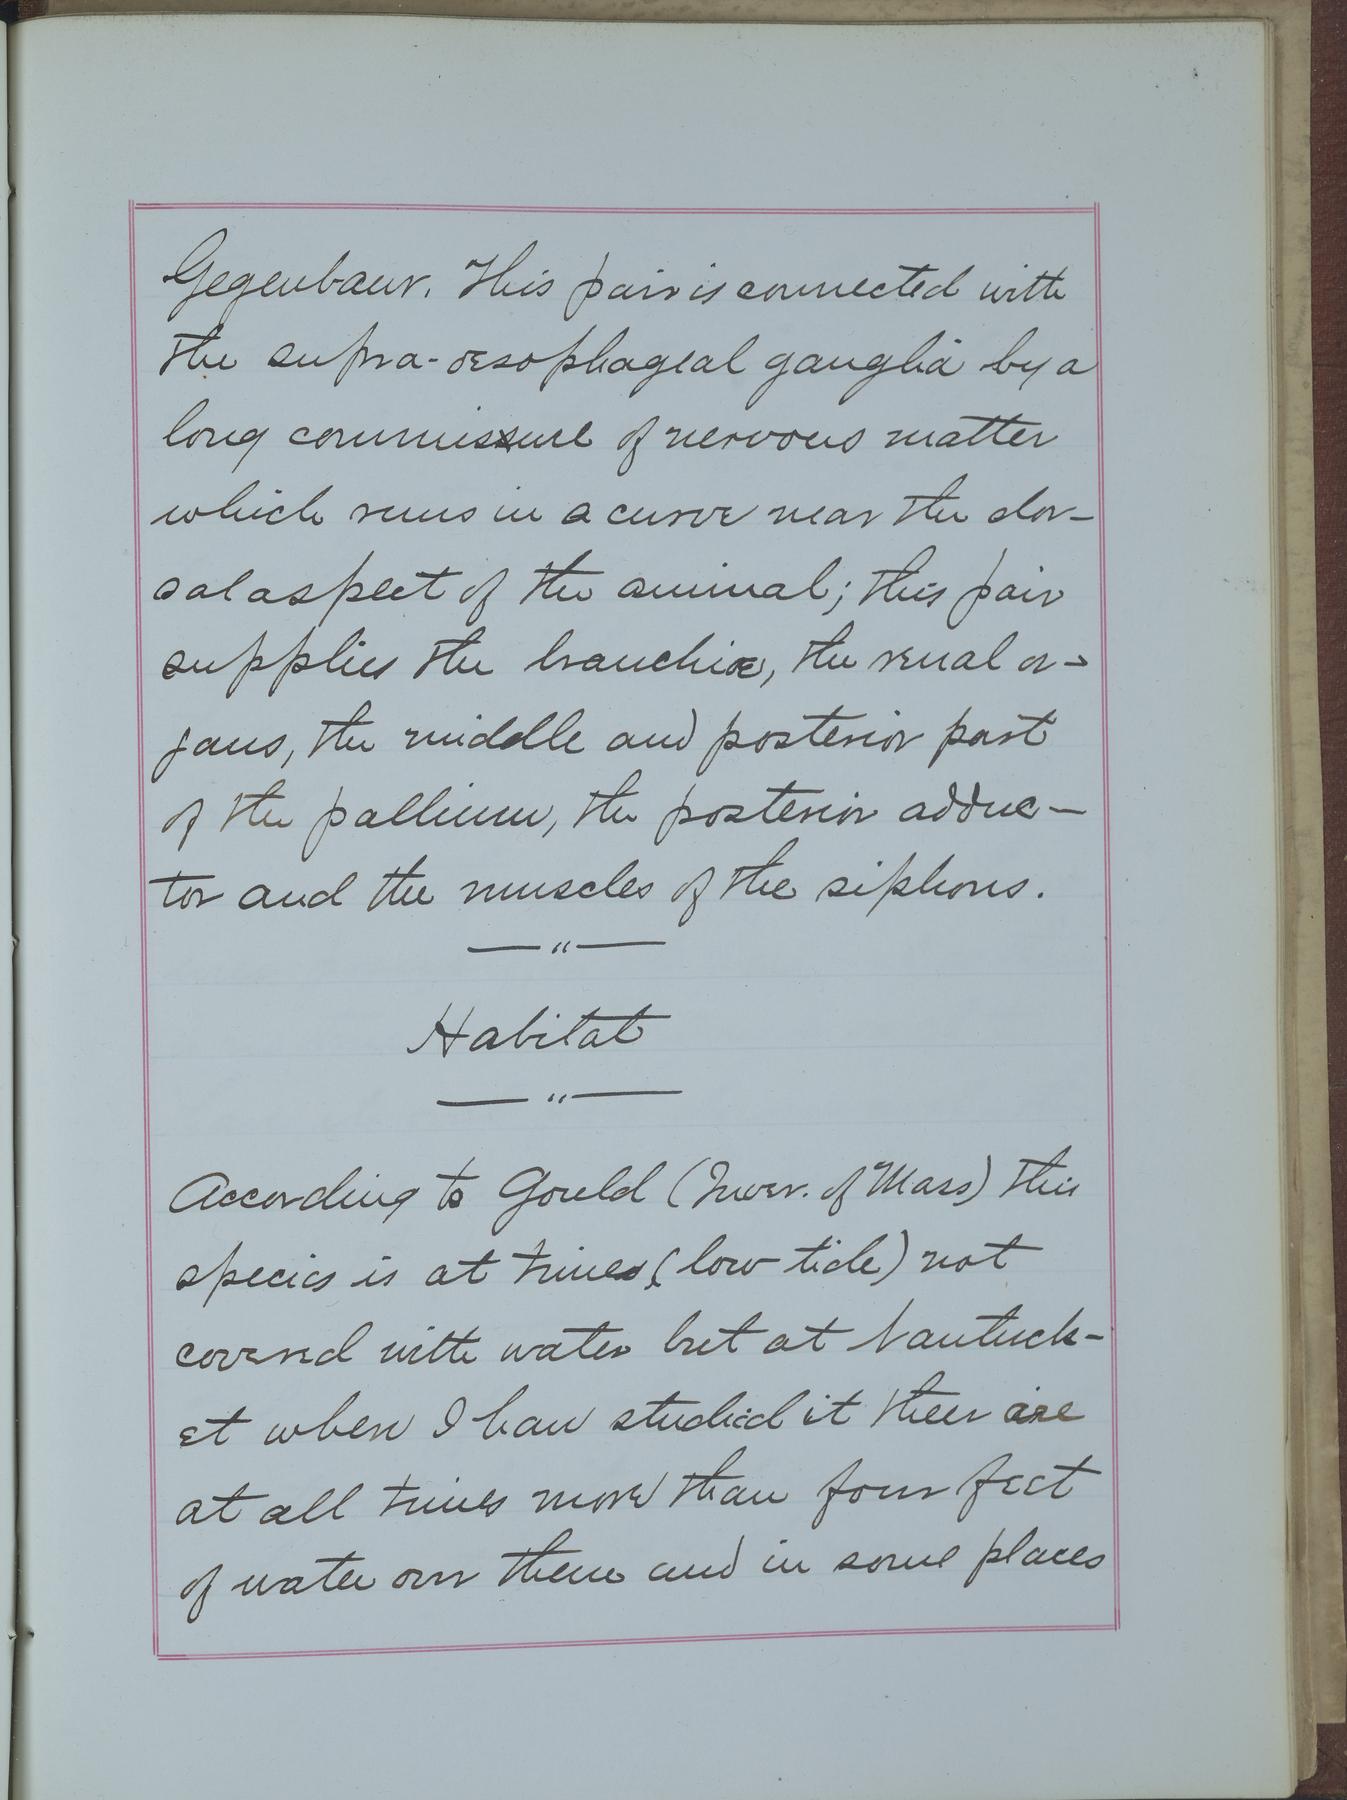 Gegenbaur. This pair is connected with
the supra-œsophageal ganglia by a
long commissure of nervous matter
which runs in a curve near the dor-
sal aspect of the animal; this pair
supplies the branchiæ, the renal or-
gans, the middle and posterior part
of the pallium, the posterior adduc-
tor and the muscles of the siphons.
— " —
Habitat
— " —
According to Gould (Inver. of Mass) this
species is at times (low tide) not
covered with water but at Nantuck-
et when I have studied it there are
at all times more than four feet
of water over them and in some places